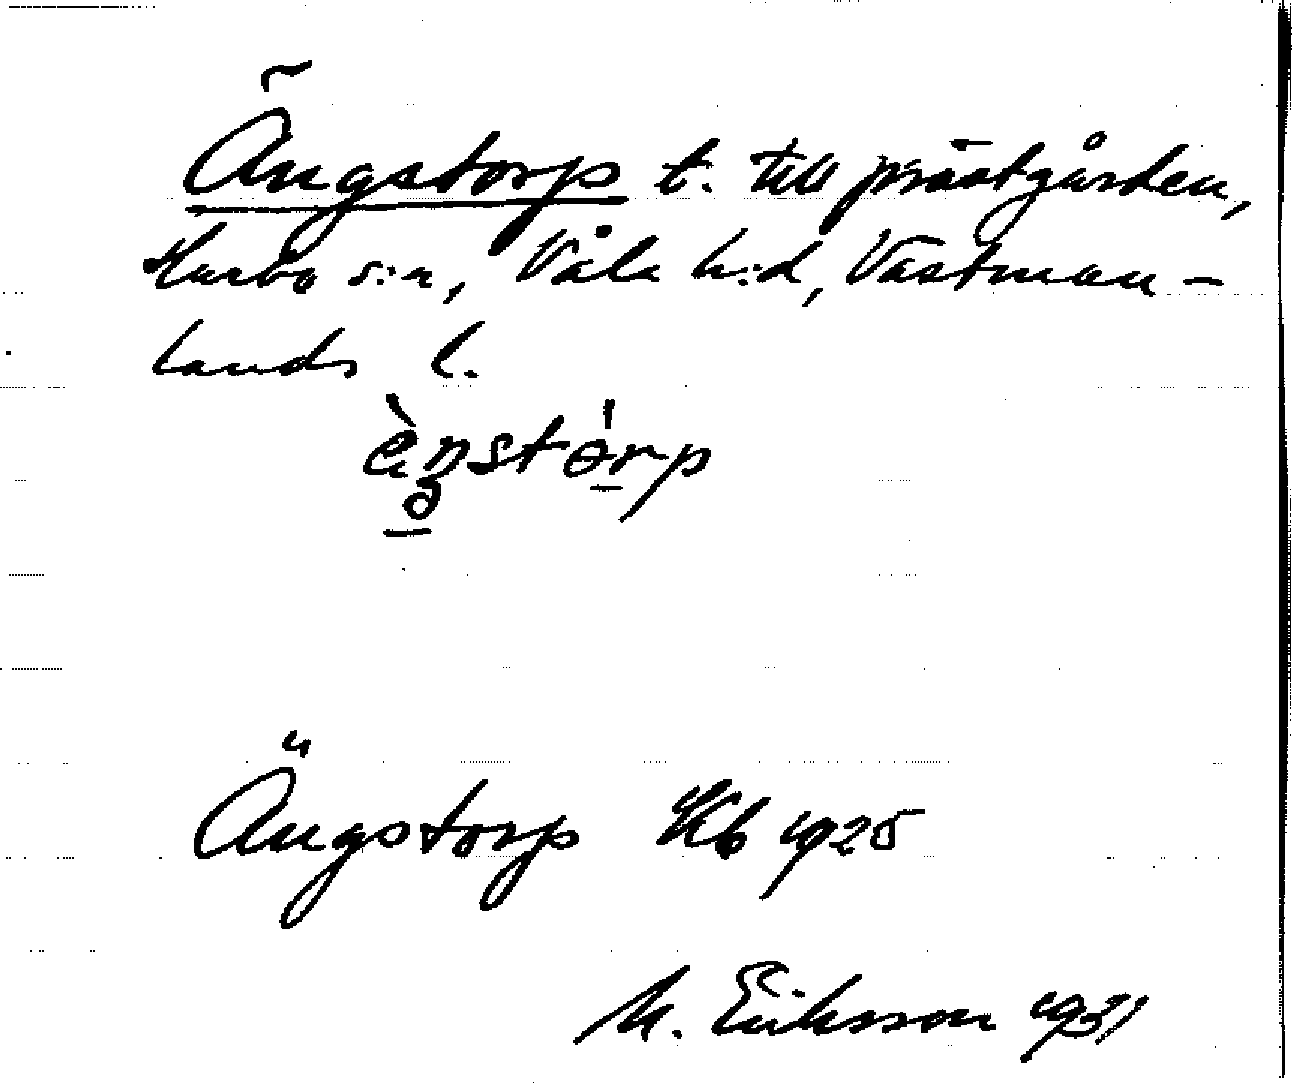 Ängstorp t. till prästgården,
Harbo s:n, Våla h:d, Västman-
lands l.
Ängstorp Kb 1925
M. Eriksson 1931